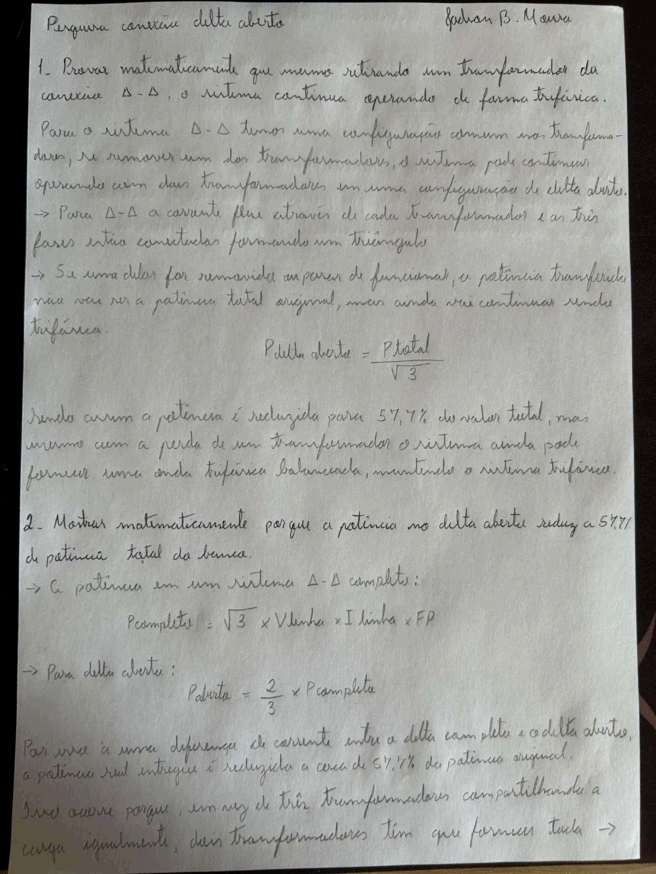 Pesquisa conexão delta aberto Jadson B. Moura
1- Provar matematicamente que mesmo retirando um transformador da
conexão Δ-Δ, o sistema continua operando de forma trifásica.
Para o sistema Δ-Δ temos uma configuração comum nos transforma-
dores, se remover um dos transformadores, o sistema pode continuar
operando com dois transformadores em uma configuração de delta aberto.
→ Para Δ-Δ a corrente flui através de cada transformador e as três
fases estão conectadas formando um triângulo
→ Se uma delas for removida ou parar de funcionar, a potência transferida
não vai ser a potência total original, mais ainda vai continuar sendo
trifásica.
P delta aberto = P total / √3
sendo assim a potência é reduzida para 57,7% do valor total, mas
mesmo com a perda de um transformador o sistema ainda pode
fornecer uma onda trifásica balanceada, mantendo o sistema trifásico.
2- Mostrar matematicamente porque a potência no delta aberto reduz a 57,7%
de potência total do banco.
→ A potência em um sistema Δ-Δ completo:
P completo = √3 × V linha × I linha × FP
→ Para delta aberto:
P aberto = 2/3 × P completo
Por isso à uma diferença de corrente entre o delta completo e o delta aberto,
a potência real entregue é reduzida a cerca de 57,7% da potência original.
Isso ocorre porque, em vez de três transformadores compartilhando a
carga igualmente, dois transformadores têm que fornecer toda →